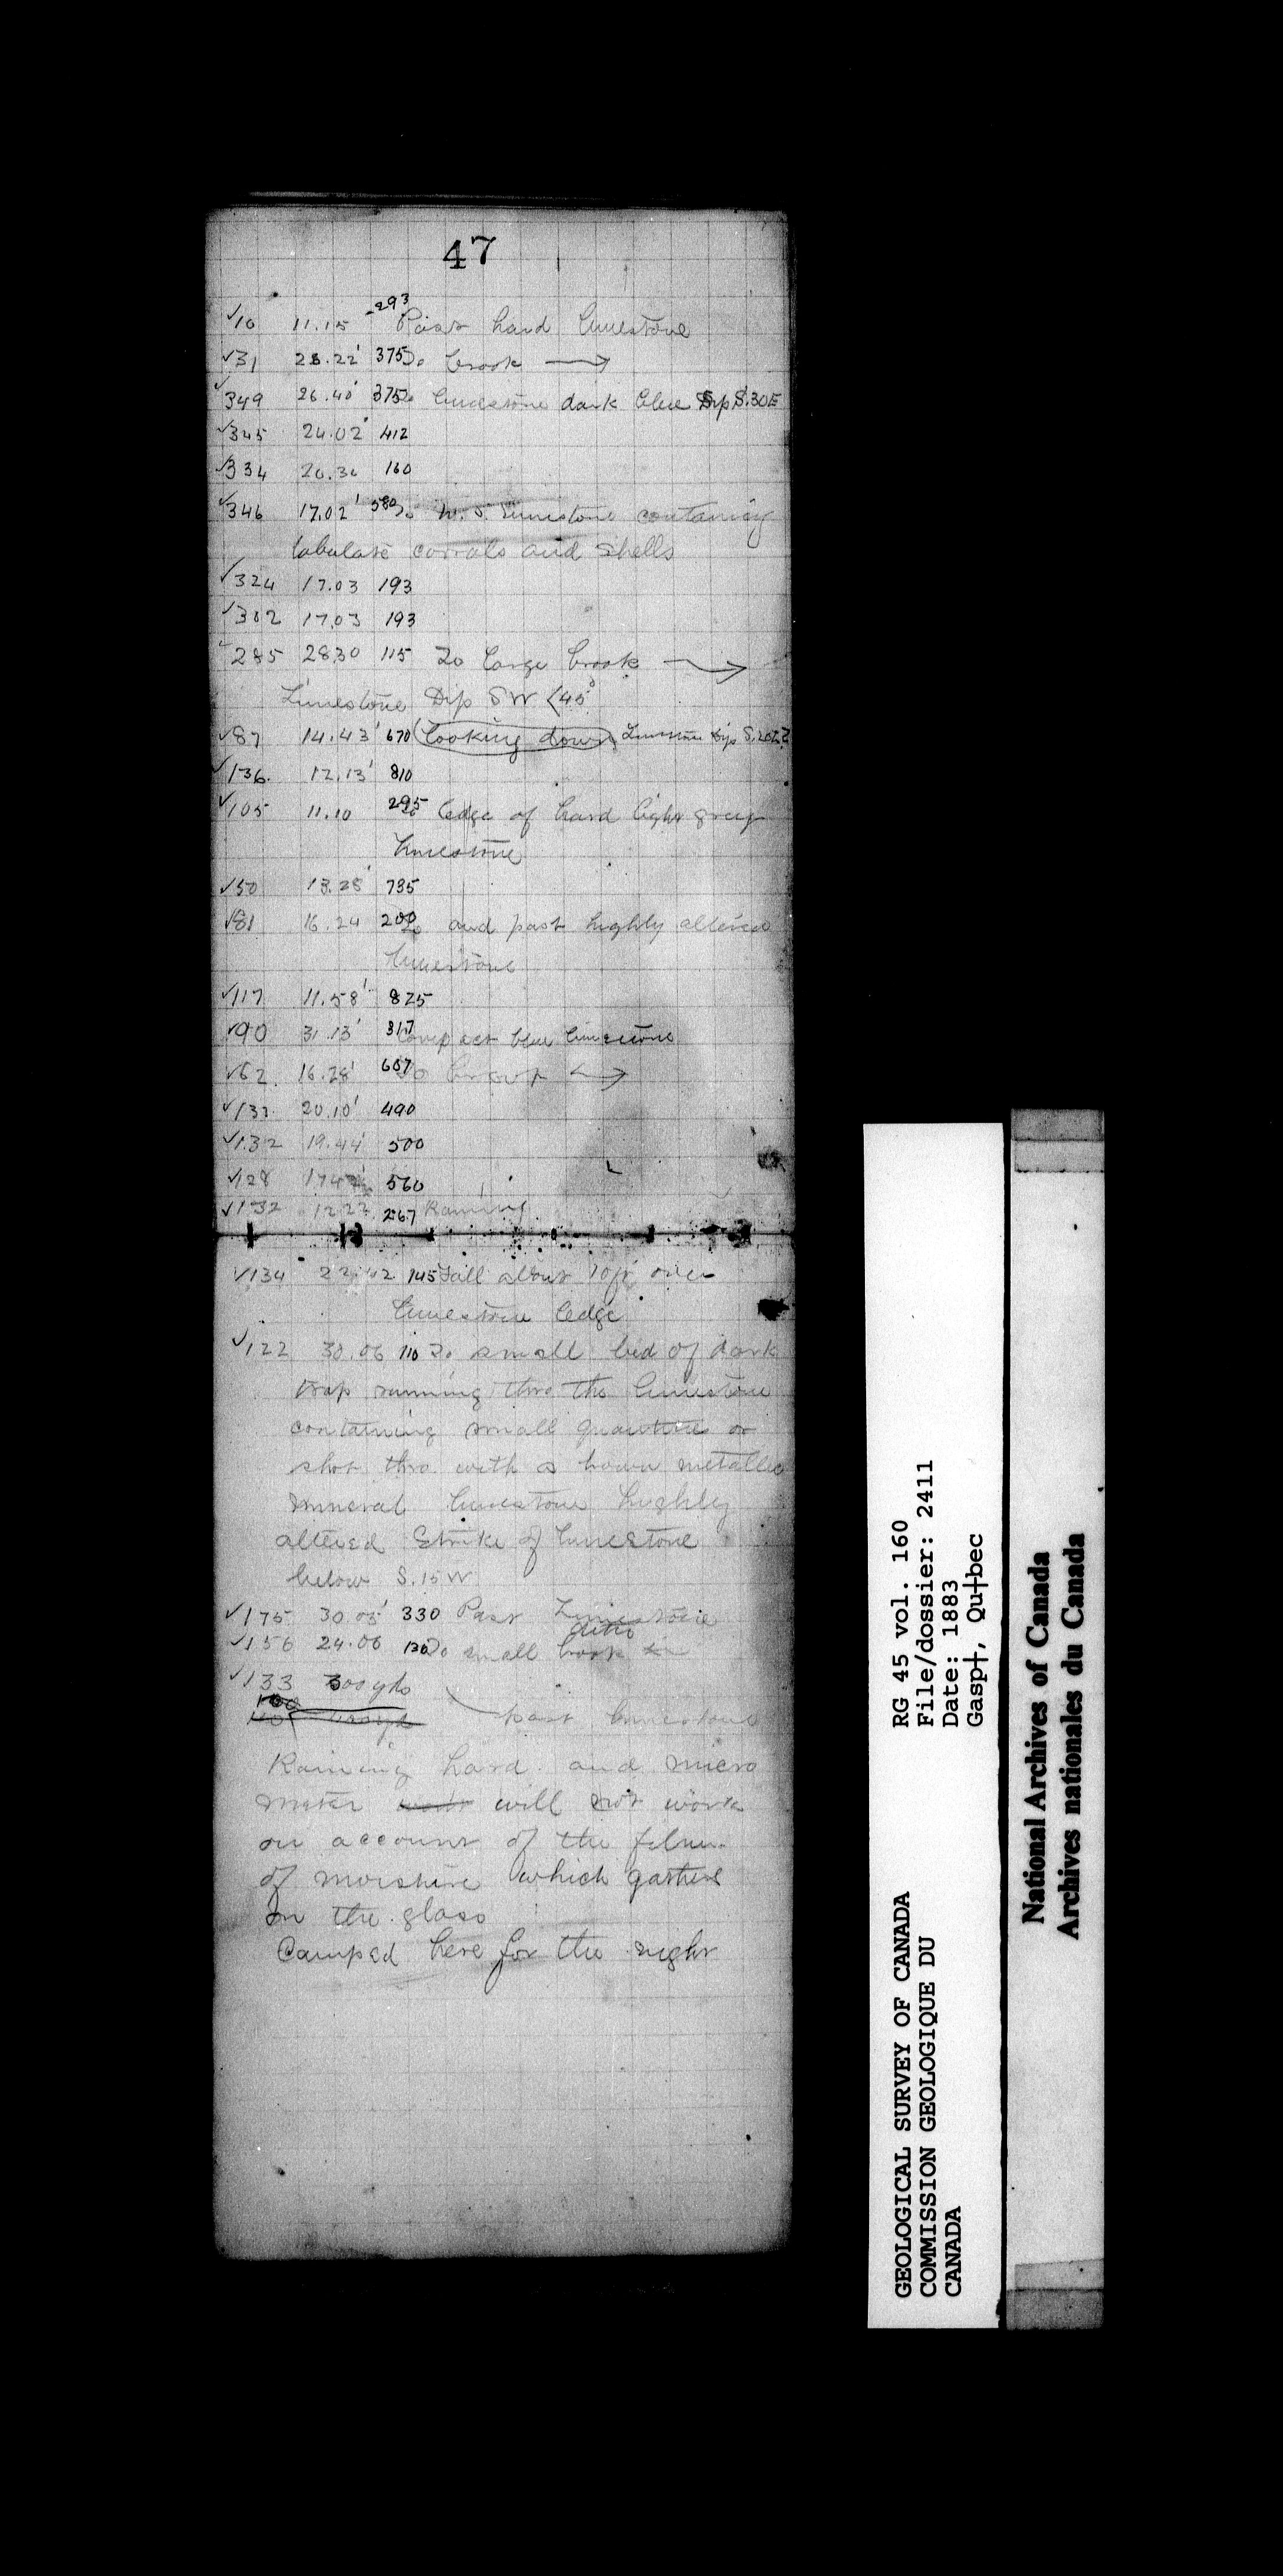 47
✓10 11.15 293 Past hard limestone
✓31 25.22' 375 To brook →
✓349 26.40' 375 To limestone dark blue Dip S.30E
✓345 24.02' 412
✓334 20.36 160
✓346 17.02' 580 To limestone containing
tabulate corrals and shells
✓324 17.03 193
✓302 17.03 193
✓285 28.30 115 To large brook →
Limestone Dip SW <45°
✓87 14.43' 670 (looking down) Limestone dip
✓136. 12.13' 810
✓105 11.10 295 To ledge of hard light grey
limestone
✓50 13.28' 735
✓81 16.24 200 To and past highly altered
limestone
✓117 11.58' 825
✓90 31.13' 317 Compact blue limestone
✓62. 16.28' 607 To brook →
✓133 20.10' 490
✓132 19.44' 500
✓128 560
✓132 12.22 267 Raining
✓134 22.42 145 Fall about 10ft over
limestone ledge
✓122 30.06 110 To small bed of dark
trap running thro the limestone
containing small quantities or
shot thro with a brown metallic
mineral limestone highly
altered Strike of limestone
below S.15W
✓175 30.05' 330 Past Limestone
ditto
✓156 24.06 130 To small brook
✓133 300 yds
100
past limestone
Raining hard and micro
meter will not work
on account of the film
of moisture which gathers
on the glass
Camped here for the night
RG 45 vol. 160
File/dossier: 2411
Date: 1883
Gasp†, Qu†bec
GEOLOGICAL SURVEY OF CANADA
COMMISSION GEOLOGIQUE DU
CANADA
National Archives of Canada
Archives nationales du Canada